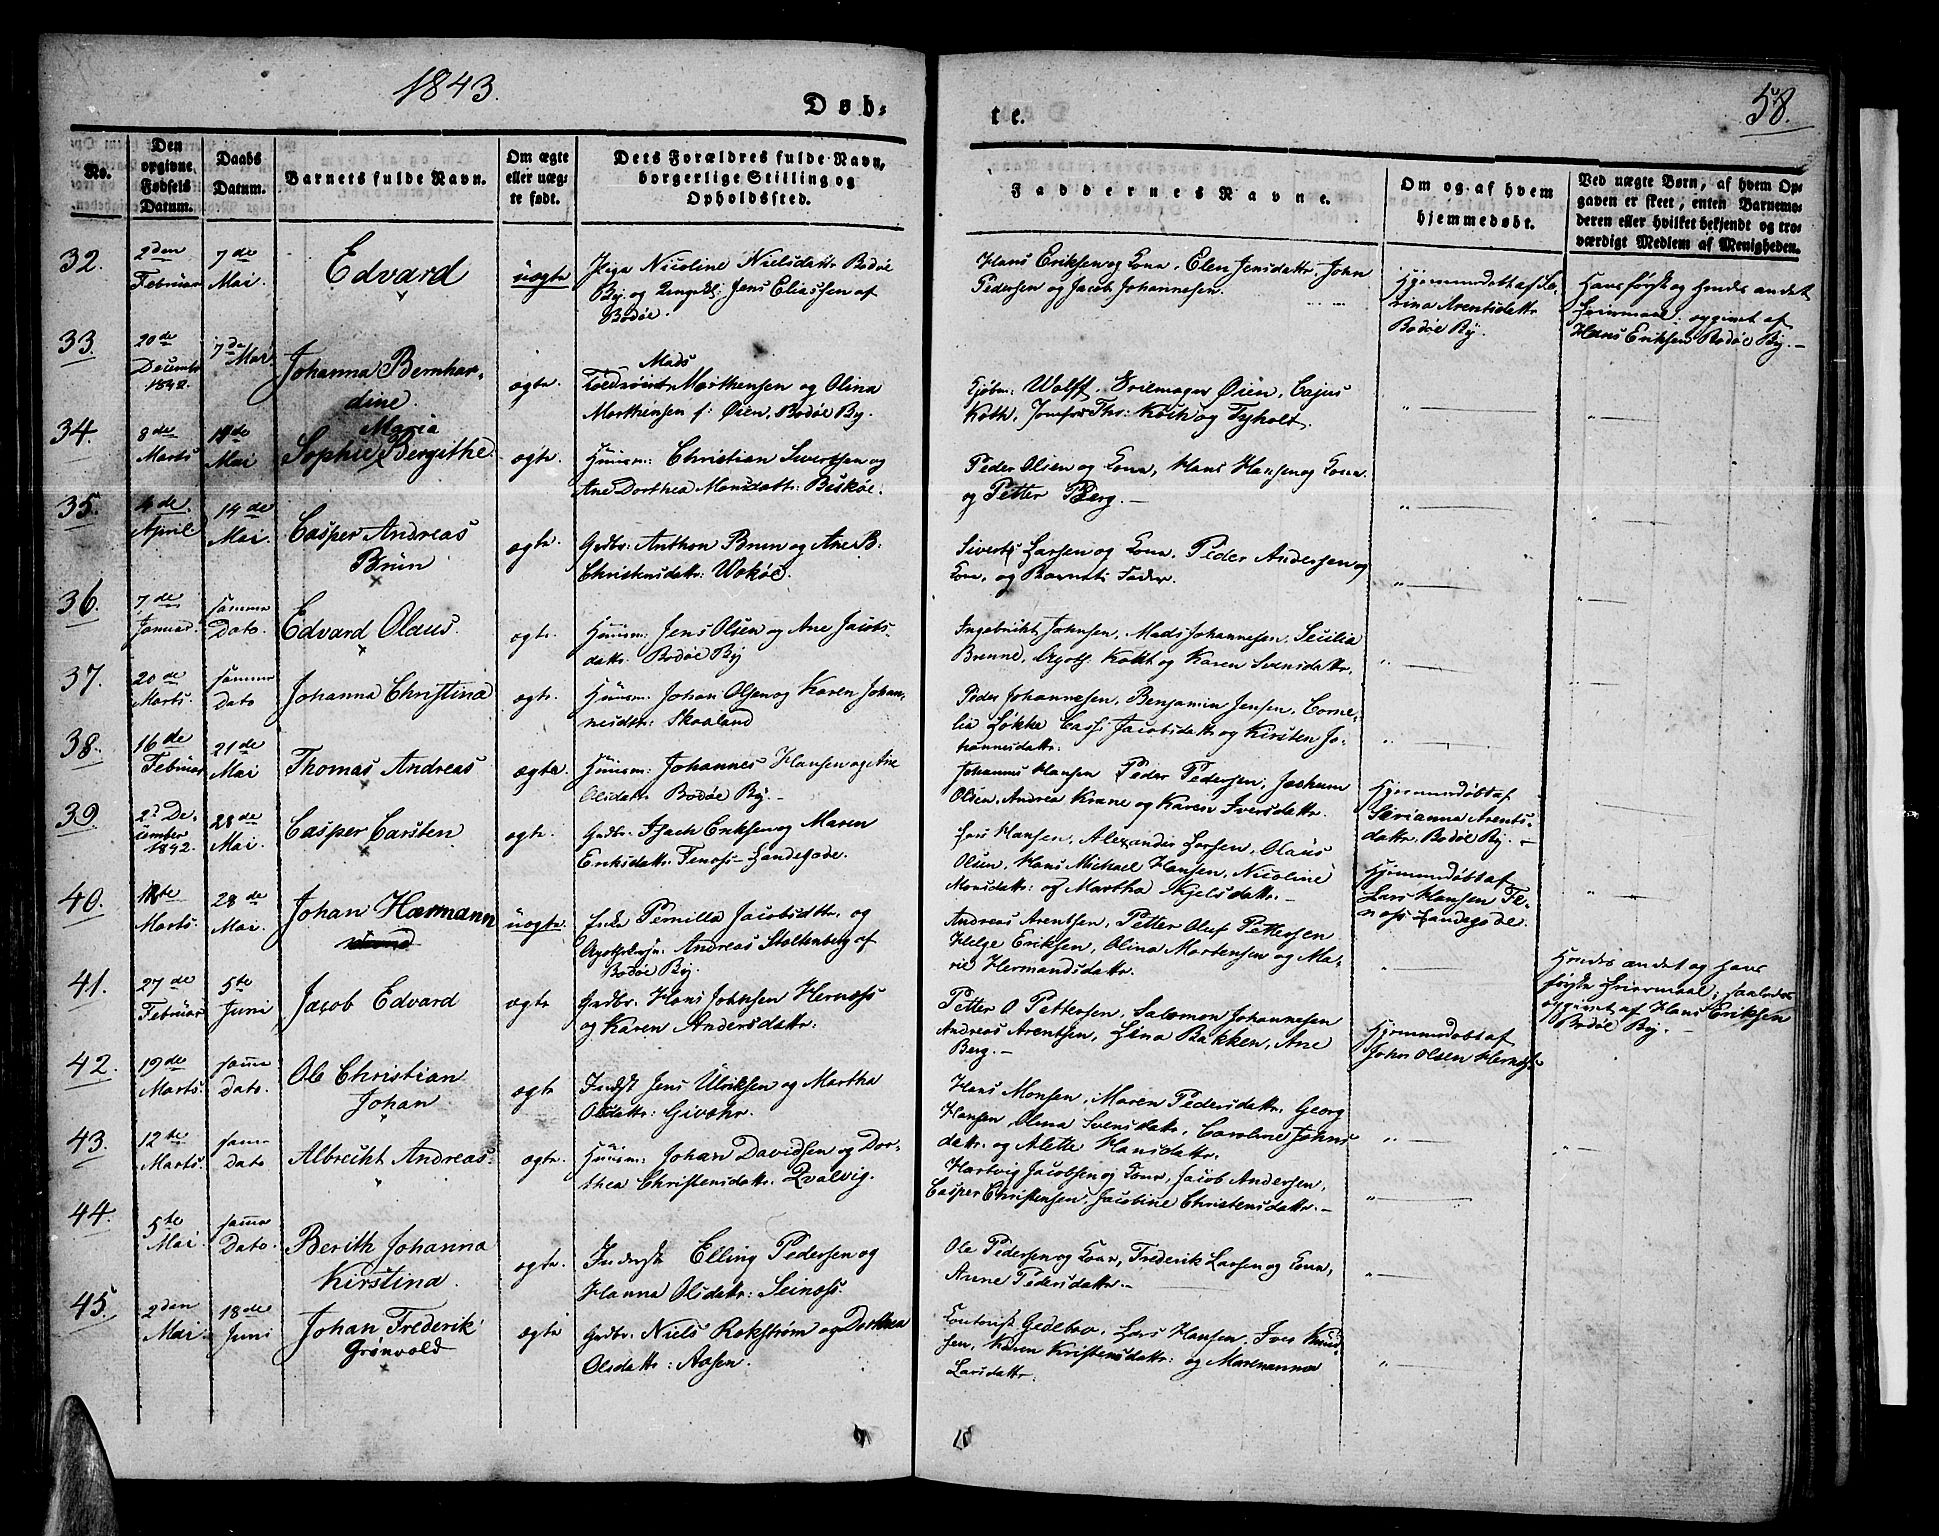 1843.
Døb-
te.
58.
No.
Den
opgivne
Fødsels
Datum.
Daabs
Datum.
Barnets fulde Navn.
Om ægte
eller uæg-
te født.
Dets Forældres fulde Navn,
borgerlige Stilling og
Opholdssted.
Faddernes Navne.
Om og af hvem
hjemmedøbt.
Ved uægte Børn, af hvem Op-
gaven er skeet, enten Barnemo-
deren eller hvilket bekjendt og tro-
værdigt Medlem af Menigheden.
32.
2den
Februar
7de
Mai.
Edvard
uægte
Pige Nicoline Nielsdattr Bodøe
By og Ungekl: Jens Eliassen af
Bodøe.
Hans Eriksen og Kona, Elen Jensdattr, John
Pedersen og Jacob Johannesen.
Hjemmedøbt af
Arentsdattr
Bodøe By.
Hans første og hendes andet
Leiermaal; opgivet af
Hans Eriksen Bodøe By.
33.
20de
December
1842.
7de Mai
Johanna Bernhar-
dine.
ægte.
Mads
Morthensen og Olina
Morthensen f: Øien, Bodøe By.
Kjøbm: Wolff, Øien, Cajus
Koch, Jomfru Ths: Koch og Tyholt.
"
"
34.
8de
Marts
14de
Mai
Maria
Sophie Bergithe
ægte.
Huusm: Christian Sivertsen og
Ane Dorthea Monsdattr: Biskøe.
Peder Olsen og Kona, Hans Hansen og Kona
og Petter Berg.
"
"
35.
4de
April.
14de
Mai.
Casper Andreas
Brun
×
ægte.
Grdbr: Anthon Brun og Ane B.
Christensdattr: Wokøe.
Sivert Larsen og Kona, Peder Andersen og
Kona, og Barnets Fader.
"
"
36.
7de
Januar.
samme
Dato.
Edvard Olaus.
×
ægte.
Huusm: Jens Olsen og Ane Jacobs-
dattr: Bodøe By
Ingebricht Johnsen, Mads Johannesen, Secilia
Brenne, Apoth: Kokt og Karen Svensdattr.
"
"
37.
20de
Marts.
samme
Dato
Johanna Christina
ægte.
Huusm: Johan Olsen og Karen Johan-
nesdtr: Skaaland
Peder Johannesen, Benjamin Jensen, Corne-
lia Løkke Jacobsdattr og Kirsten Jo-
hannesdattr.
"
38.
16de
Februar
21de
Mai
Thomas Andreas
ægte.
Huusm: Johannes Hansen og Ane
Olsdattr: Bodøe By.
Johannes Hansen Peder Pedersen, Jochum
Olsen, Andrea Krane og Karen Iversdattr.
Hjemmedøbt af
Arents-
dattr. Bodøe By.
39
2d De-
cember
1842.
28de
Mai.
Casper Carsten
×
ægte.
Grdbr: Isach Eriksen og Maren
Eriksdattr: Fenæss Landegode.
Lars Hansen, Alexander Larsen, Olaus
Olsen, Hans Michael Hansen, Nicoline
Monsdattr: og Martha Kjelsdattr.
Hjemmedøbt af
Lars Hansen Fe-
næss Landegode.
"
40.
Marts.
28de
Mai.
Johan Hærmann
uægte.
Enke Pernilla Jacobsdtr. og
Andreas Stoltenberg af
Bodøe By.
Andreas Arentsen, Petter Oluf Pettersen
Helge Eriksen, Olina Mortensen og Ma-
rie Hermandsdattr.
"
Hendes andet og hans
første Leiermaal; saaledes
opgivet af Hans Eriksen
Bodøe By.
41.
27de
Februar
5te
Juni
Jacob Edvard
ægte
Grdbr: Hans Johnsen Hernæss
og Karen Andersdattr:
Petter O Pettersen, Salomon Johannesen
Andreas Arentsen, Lina Bakken, Ane
Berg.
Hjemmedøbt af
John Olsen Hernæss
42.
19de
Marts.
samme
Dato.
Ole Christian
Johan
ægte
Inderst Jens Ulriksen og Martha
Olsdattr: Givær.
Hans Monsen, Maren Pedersdattr, Georg
Hansen, Olina Svensdattr, Caroline Johns
dattr. og Alette Hansdattr.
"
"
43.
12te
Marts.
samme
Dato
Albrecht Andreas.
ægte.
Huusm: Johan Davidsen og Dor-
thea Christensdattr: Qvalvig.
Hartvig Jacobsen og Kona, Jacob Andersen,
Casper Christensen, Jacobine Christensdattr.
"
44.
5te
Mai
samme
Dato.
Berith Johanna
Kirstina.
ægte.
Inderst Elling Pedersen og
Hanna Olsdattr: Seinæss.
Ole Pedersen og Kona, Frederik Larsen og Kona,
Anne Pedersdattr.
"
45.
2den
Mai.
18de
Juni
Johan Frederik
Grønvold
×
ægte
Grdbr: Niels Rokstrøm og Dorthea
Olsdattr: Aasen.
Gedebro, Lars Hansen, Iver Knud-
sen, Karen Kristensdattr: og Marenanna
Larsdattr.
"